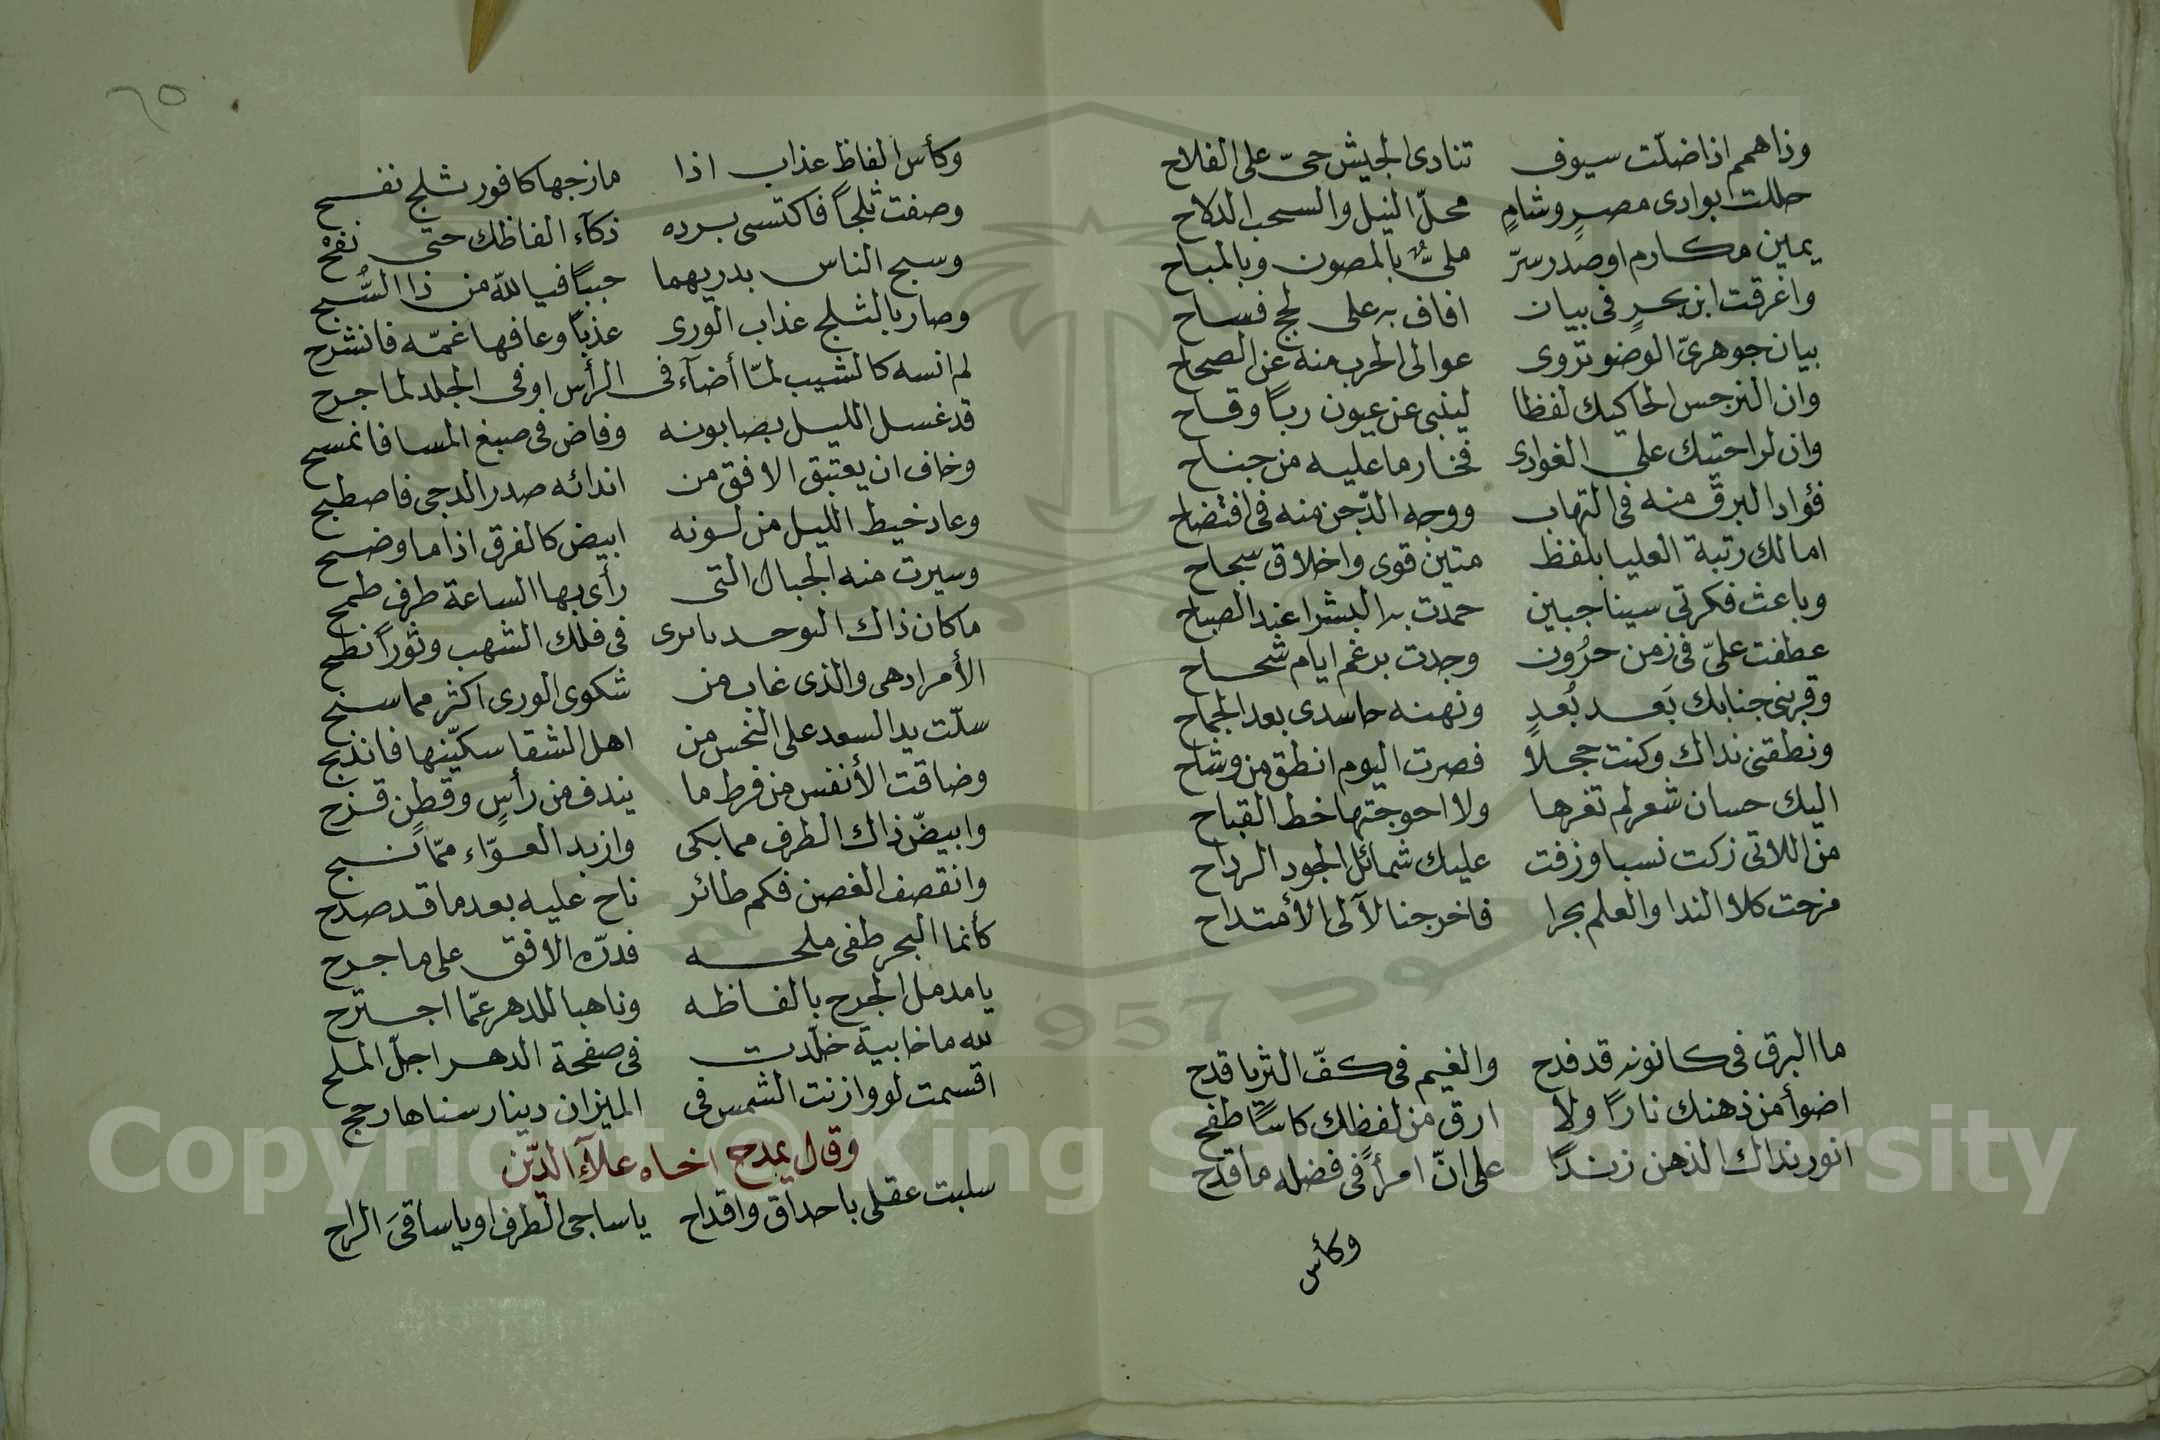 وذاهمم اذا ضلّت سيوف تنادى الجيش حىّ على الفلاح
حللت ابوادى مصرٍ وشامٍ محلّ النيل والسحب الدلاح
يمين مكارم او صدر سرّ ملىٌّ بالمصون وبالمباح
واغرقت ابن بحرٍ فى بيان افاف به على لجج فساح
بيان جوهرىّ الوضو تروى عوالى الحرب منه عن الصحاح
وان النرجس الحاكيك لفظا لينبى عن عيون رباً وقاح
وان لراحتيك على الغوادى فخار ما عليه من جناح
فؤاد البرق منه فى التهاب ووجه الدّجن منه فى افتضاح
امالك رتبة العليا بلفظ متين قوى واخلاق سجاح
وباعث فكرتى سينا جبين حمدت به البشرا عند الصباح
عطفت علىّ فى زمن حرُون وجدت برغم ايام شحاح
وقربنى جنابك بَعد بُعدٍ ونهنه حاسدى بعد الجماح
ونطقنى نداك وكنت حجلاً فصرت اليوم انطق من وشاح
اليك حسان شعر لم تغرها ولا احوجتها خط القباح
من اللاتى زكت نسبا وزفت عليك شمائل الجود الرداح
مزجت كلا الندا والعلم بحرا فاخرجنا لآلى الأمتداح
ما البرق فى كانونه قد فدح والغيم فى كفّ الثريا قدح
اضوأ من ذهنك ناراً ولا ارق من لفظك كاساً طفح
انور بذاك الذهن زنداً على انّ امرأً فى فضله ما قدح
وكأس
٦٥
وكأس الفاظ عذاب اذا مازجها كافور ثلج نفح
وصفت ثلجاً فاكتسى برده ذكآء الفاظك حتى نفح
وسبح الناس بدريهما حبباً فيا لله من ذا السُّبح
وصار بالثلج عذاب الورى عذباً وعافها غمّه فانشرح
لم انسه كالشيب لمّا أضآء فى الرأس او فى الجلد لما جرح
قد غسل الليل بصابونه وفاض فى صبغ المسا فانمسح
وخاف ان يعتبق الافق من اندائه صدر الدجى فاصطبح
وعاد خيط الليل من لونه ابيض كالفرق اذا ما وضح
وسيرت منه الجبال التى رأى بها الساعة طرف طمح
ما كان ذاك الوحد يا برى فى فلك الشهب وثوراً نطح
الأمر ادهى والذى غاب من شكوى الورى اكثر مما سنح
سلّت يد السعد على النحس من اهل الشقا سكيّنها فانذبح
وضاقت الأنفس من فرط ما يندف من رأسٍ وقطن قزح
وابيضّ ذاك الطرف مما بكى وازبد العوّاء ممّا نبح
وانقصف الغصن فكم طائر ناح عليه بعد ما قد صدح
كأنما البحر طفى ملحه فدرّه الافق على ما جرح
يا مدمل الجرح بالفاظه وناهبا للدهر عمّا اجترح
لله ما خابية خلّدت فى صفحة الدهر اجلّ الملح
اقسمت لو وازنت الشمس فى الميزان دينار سناها رجح
وقال يمدح اخاه علآء الدّين
سلبت عقلى باحداق واقداح يا ساجى الطرف او يا ساقىَ الراح
Copyright © King Saud University
1957